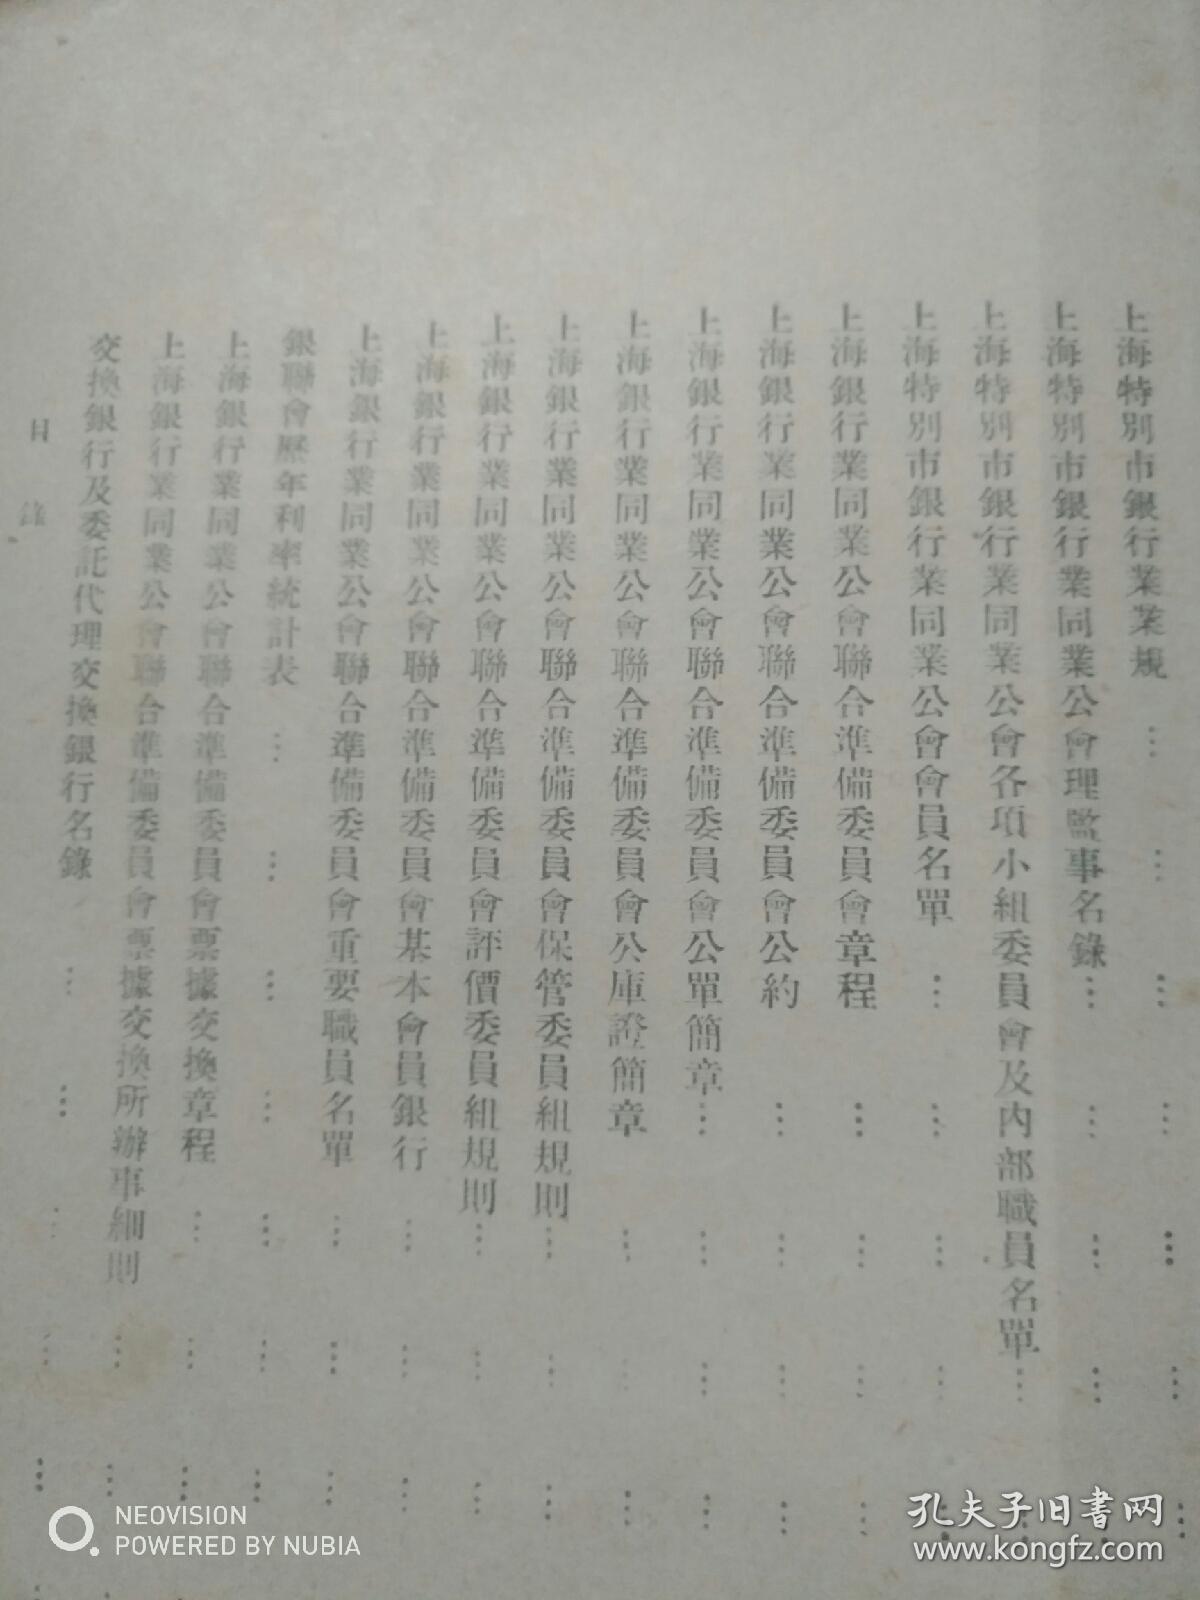 上海特別市銀行業業規
上海特別市銀行業同業公會理監事名錄
上海特別市銀行業同業公會各項小組委員會及內部職員名單
上海特別市銀行業同業公會會員名單
上海銀行業同業公會聯合準備委員會章程
上海銀行業同業公會聯合準備委員會公約
上海銀行業同業公會聯合準備委員會公單簡章
上海銀行業同業公會聯合準備委員會公庫證簡章
上海銀行業同業公會聯合準備委員會保管委員組規則
上海銀行業同業公會聯合準備委員會評價委員組規則
上海銀行業同業公會聯合準備委員會基本會員銀行
上海銀行業同業公會聯合準備委員會重要職員名單
銀聯會歷年利率統計表
上海銀行業同業公會聯合準備委員會票據交換章程
上海銀行業同業公會聯合準備委員會票據交換所辦事細則
交換銀行及委託代理交換銀行名錄
目錄
NEOVISION
POWERED BY NUBIA
孔夫子旧书网
www.kongfz.com